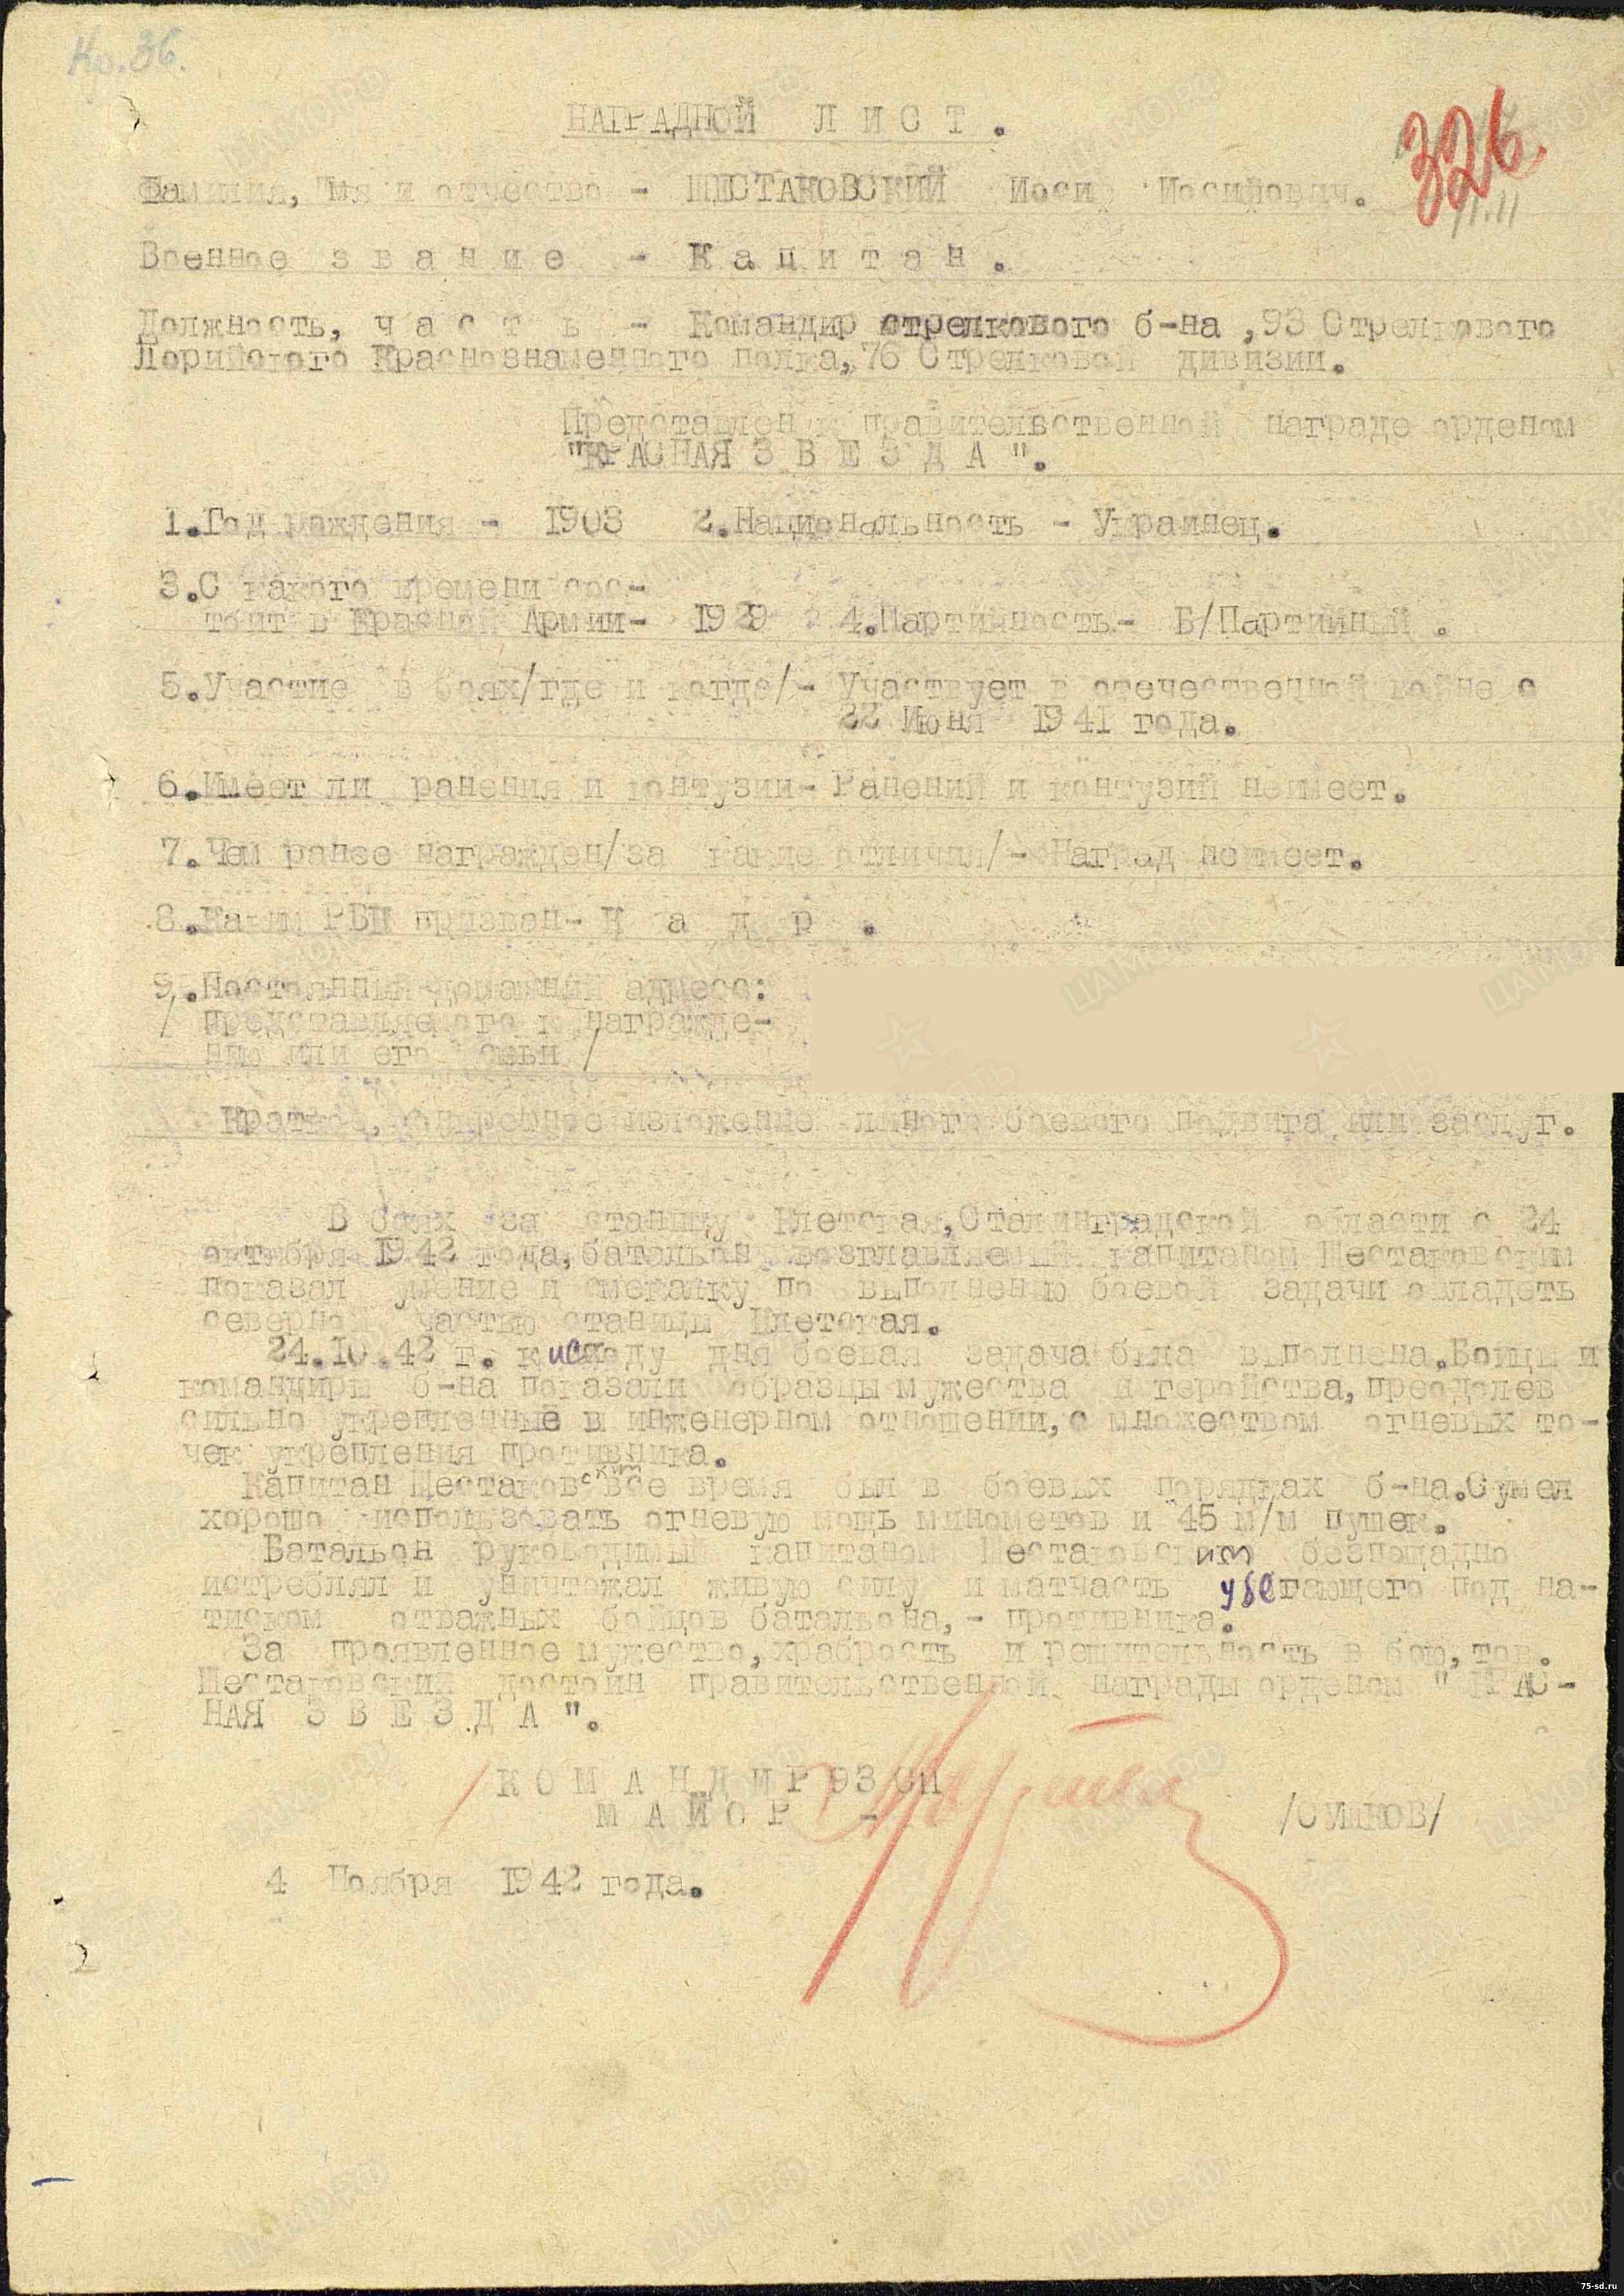 Кр.36.
НАГРАДНОЙ Л И С Т .
326.
11.11
Фамилия, Имя и отчество - ШЕСТАКОВСКИЙ Иосиф Иосифович.
Военное з в а н и е - К а п и т а н .
Должность, ч а с т ь - Командир стрелкового б-на ,93 Стрелкового
Лорийского Краснознаменного полка, 76 Стрелковой дивизии.
Представлен к правительственной награде орденом
"КРАСНАЯ З В Е З Д А ".
1.Год рождения - 1903 2.Национальность - Украинец.
3.С какого времени сос-
тоит в Красной Армии- 1929 4.Партийность- Б/Партийный .
5.Участие в боях/где и когда/- Участвует в отечественной войне с
22 Июня 1941 года.
6.Имеет ли ранения и контузии- Ранений и контузий неимеет.
7.Чем ранее награжден/за какие отличия/- Наград неимеет.
8.Каким РВК призван- К а д р .
9.Постоянный домашний адресс:
/ представляемого к награжде-
нию или его семьи /
Краткое, конкретное изложение личного боевого подвига или заслуг.
В боях за станицу Клетская,Сталинградской области с 24
октября 1942 года,батальон возглавляемый капитаном Шестаковским
показал умение и смекалку по выполнению боевой задачи овладеть
северной частью станицы Клетская.
24.10.42 г. к исходу дня боевая задача была выполнена.Бойцы и
командиры б-на показали образцы мужества и геройства,преодолев
сильно укрепленные в инженерном отношении,с множеством огневых то-
чек укрепления противника.
Капитан Шестаковский все время был в боевых порядках б-на.Сумел
хорошо использовать огневую мощь минометов и 45 м/м пушек.
Батальон руководимый капитаном Шестаковским безпощадно
истреблял и уничтожал живую силу и матчасть убегающего под на-
тиском отважных бойцов батальона,- противника.
За проявленное мужество,храбрость и решительность в бою,тов.
Шестаковский достоин правительственной награды орденом " КРАС-
НАЯ З В Е З Д А ".
К О М А Н Д И Р 93 СП
М А Й О Р -
/СУШКОВ/
4 Ноября 1942 года.
75-sd.ru